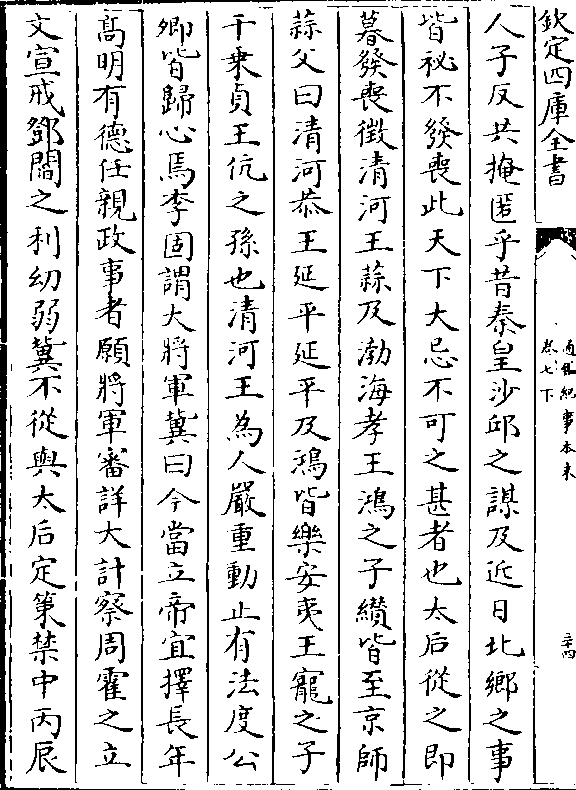 欽定四庫全書
通鑑紀事本末
卷七下
三十四
人子反共掩匿乎昔秦皇沙邱之謀及近日北鄉之事
皆祕不發喪此天下大忌不可之甚者也太后從之即
暮發喪徵清河王蒜及渤海孝王鴻之子纘皆至京師
蒜父曰清河恭王延平延平及鴻皆樂安夷王寵之子
千乗貞王伉之孫也清河王為人嚴重動止有法度公
卿皆歸心焉李固謂大將軍冀曰今當立帝宜擇長年
髙明有德任親政事者願將軍審詳大計察周霍之立
文宣戒鄧閻之利幼弱冀不從與太后定䇿禁中丙辰